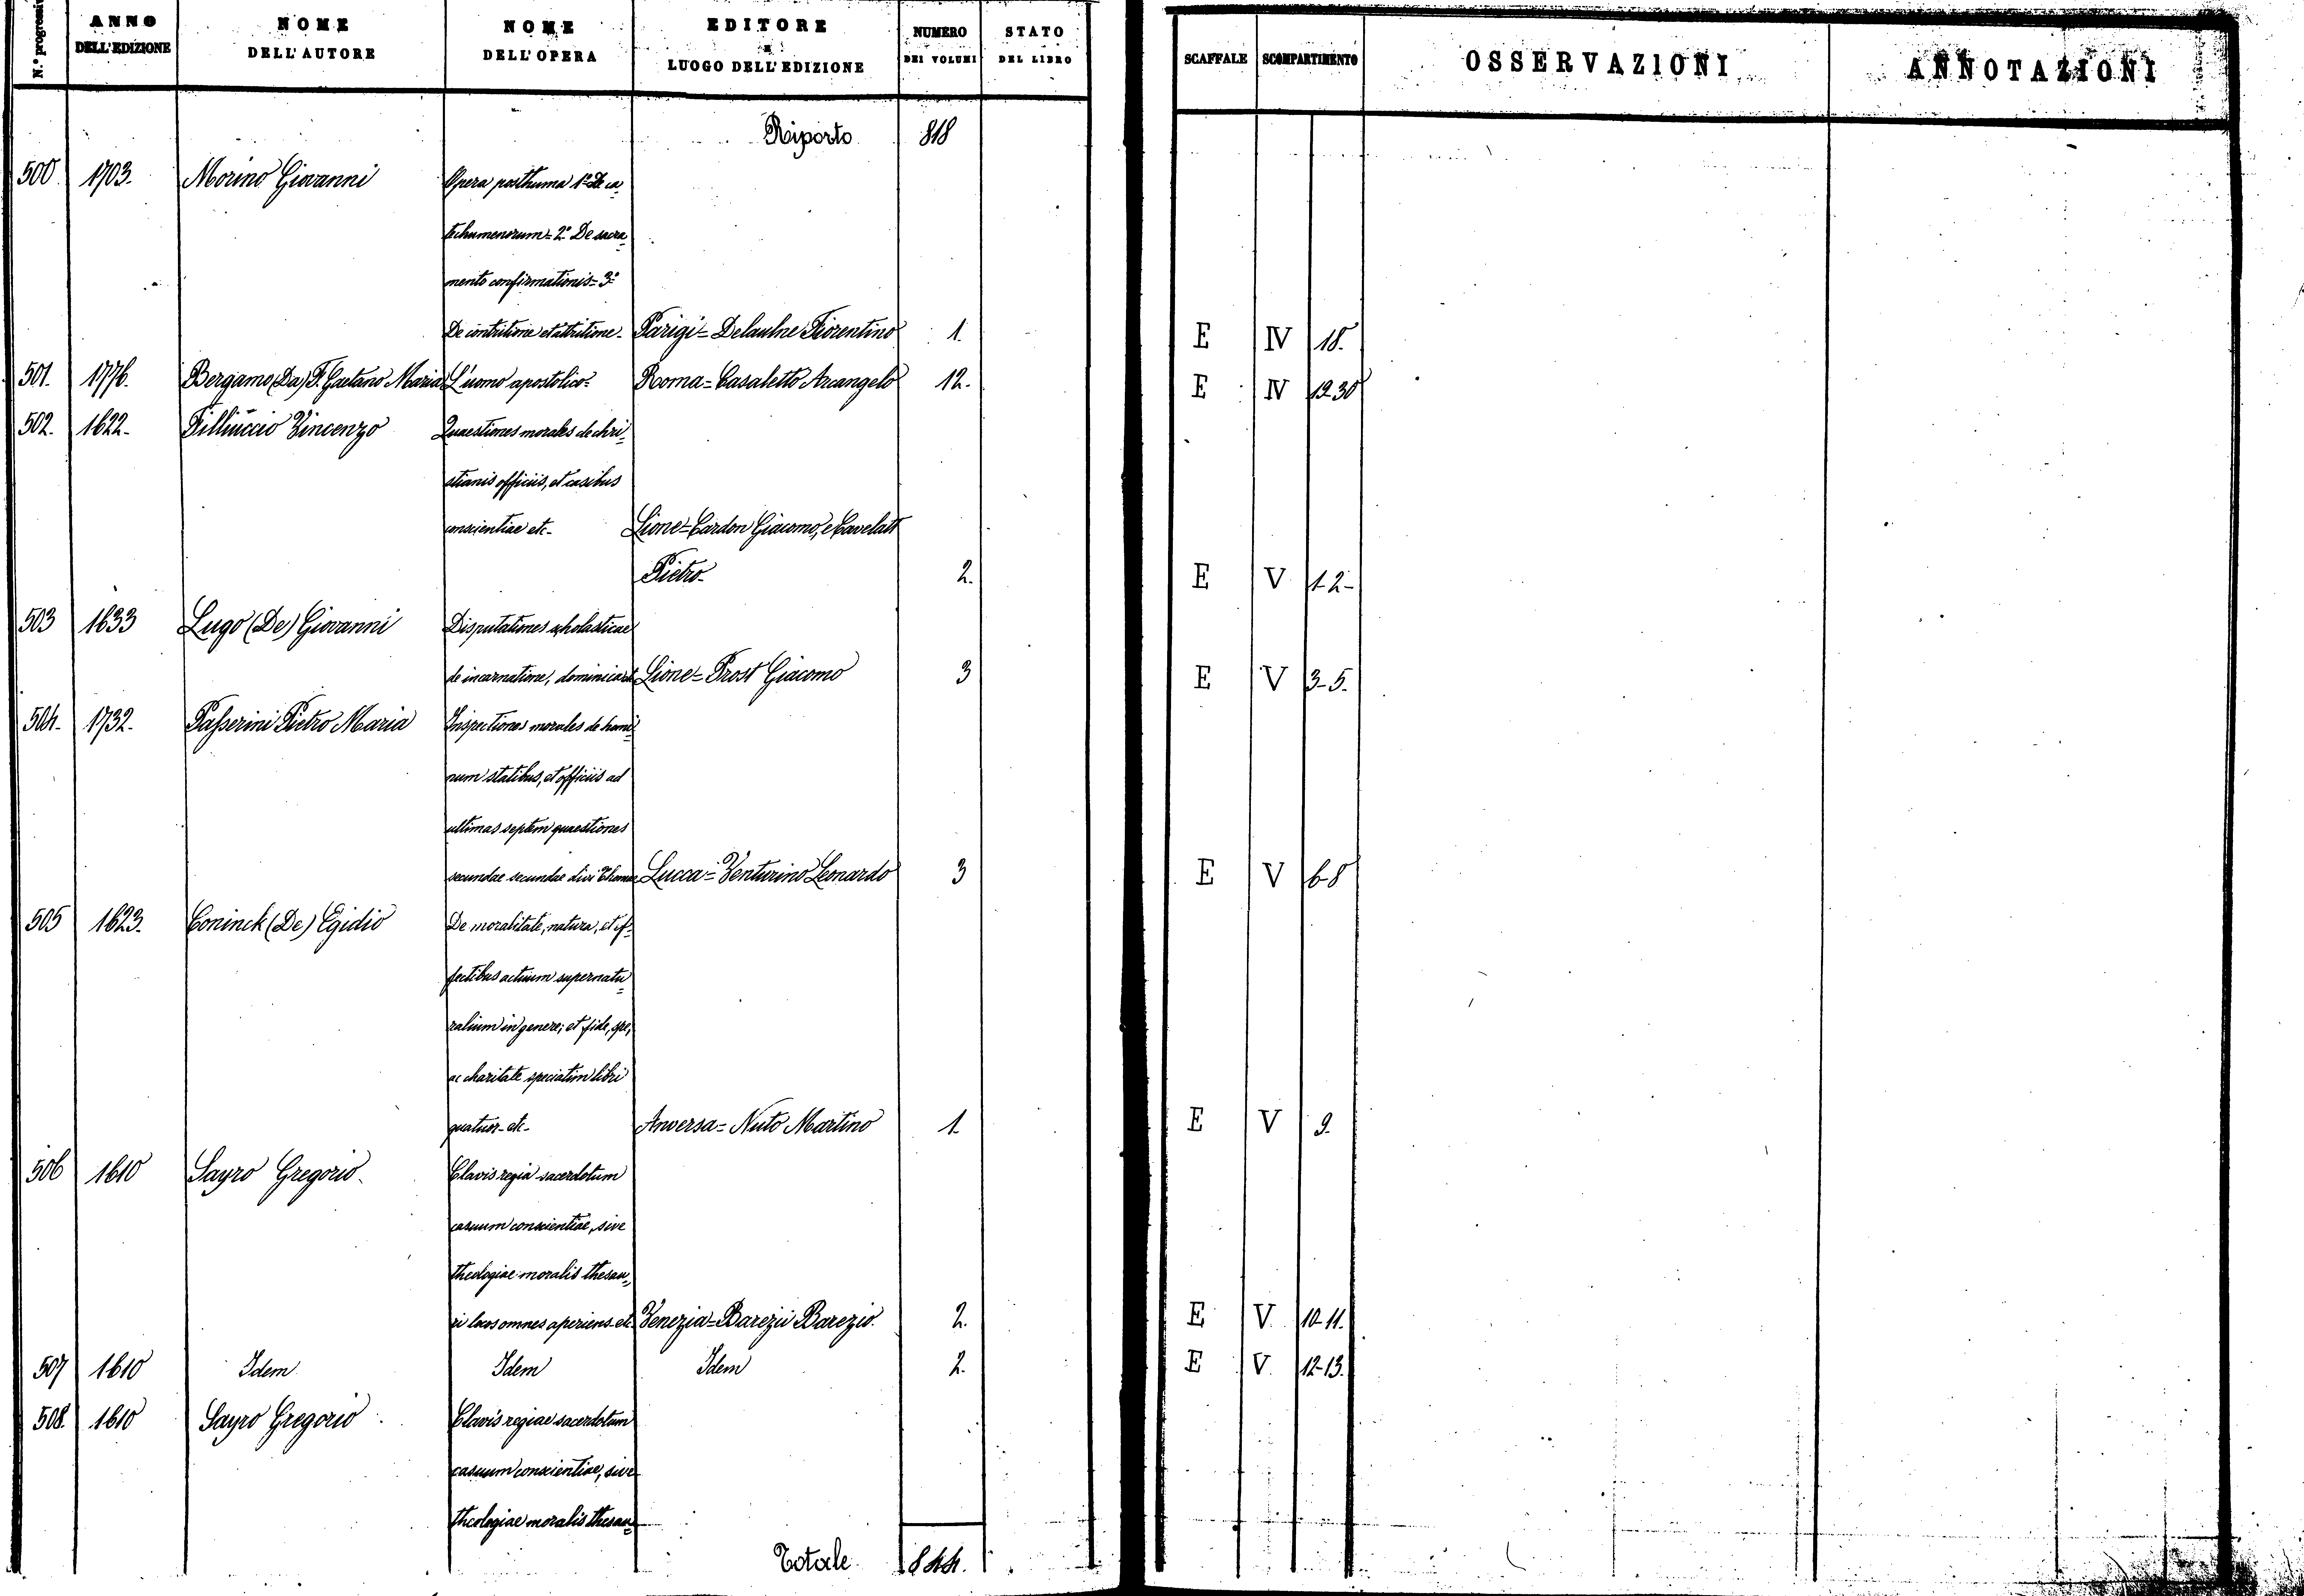 N.° progressivo ANNO DELL'EDIZIONE NOME DELL'AUTORE NOME DELL'OPERA EDITORE E LUOGO DELL'EDIZIONE NUMERO DEI VOLUMI STATO DEL LIBRO SCAFFALE SCOMPARTIMENTO OSSERVAZIONI ANNOTAZIONI
Riporto 818
500. 1703. Morino Giovanni Opera posthuma 1° De ca-
techumenorum = 2° De sacra-
mento confirmationis = 3°
De contritione et attritione - Parigi = Delaulne Fiorentino 1. E IV 18.
501. 1776. Bergamo (Da) F. Gaetano Maria L'uomo apostolico - Roma = Casaletto Arcangelo 12. E IV 19-30
502. 1622. Filliuccio Vincenzo Quaestiones morales de chri-
stianis officiis, et casibus
conscientiae etc. Lione = Cardon Giacomo, e Cavelatt
Pietro 2. E V 1-2-
503 1633 Lugo (De) Giovanni Disputationes scholasticae
de incarnatione, dominica et Lione = Prost Giacomo 3 E V 3-5.
504. 1732. Passerini Pietro Maria Inspectiones morales de homi-
num statibus, et officiis ad
ultimas septem quaestiones
secundae secundae divi Thomae Lucca = Venturino Leonardo 3 E V 6-8
505 1623. Coninck (De) Egidio De moralitate, natura, et ef-
fectibus actuum supernatu-
ralium in genere; et fide, spe,
ac charitate speciatim libri
quatuor - etc - Anversa = Nuto Martino 1. E V 9.
506 1610 Sayro Gregorio Clavis regia sacerdotum
casuum conscientiae, sive
theologiae moralis thesau-
ri locos omnes aperiens etc. Venezia = Barezii Barezio. 2. E V. 10-11.
507 1610 Idem Idem Idem 2. E V. 12-13.
508. 1610 Sayro Gregorio Clavis regiae sacerdotum
casuum conscientiae, sive
theologiae moralis thesau-
Totale 844.